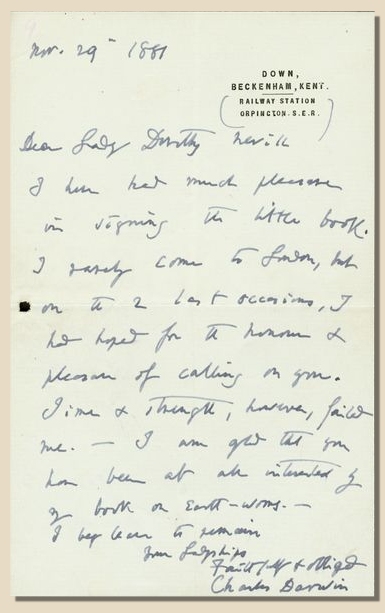 Nov. 29th 1881
DOWN,
BECKENHAM, KENT.
RAILWAY STATION
ORPINGTON. S.E.R.
Dear Lady Dorothy Nevill
I have had much pleasure
in signing the little book.
I rarely come to London, but
on the 2 last occasions, I
had hoped for the honour &
pleasure of calling on you.
Time & strength, however, failed
me. — I am glad that you
have been at all interested by
my book on Earth-worms. —
I beg leave to remain
Your Ladyship's
Faithfully & obliged
Charles Darwin